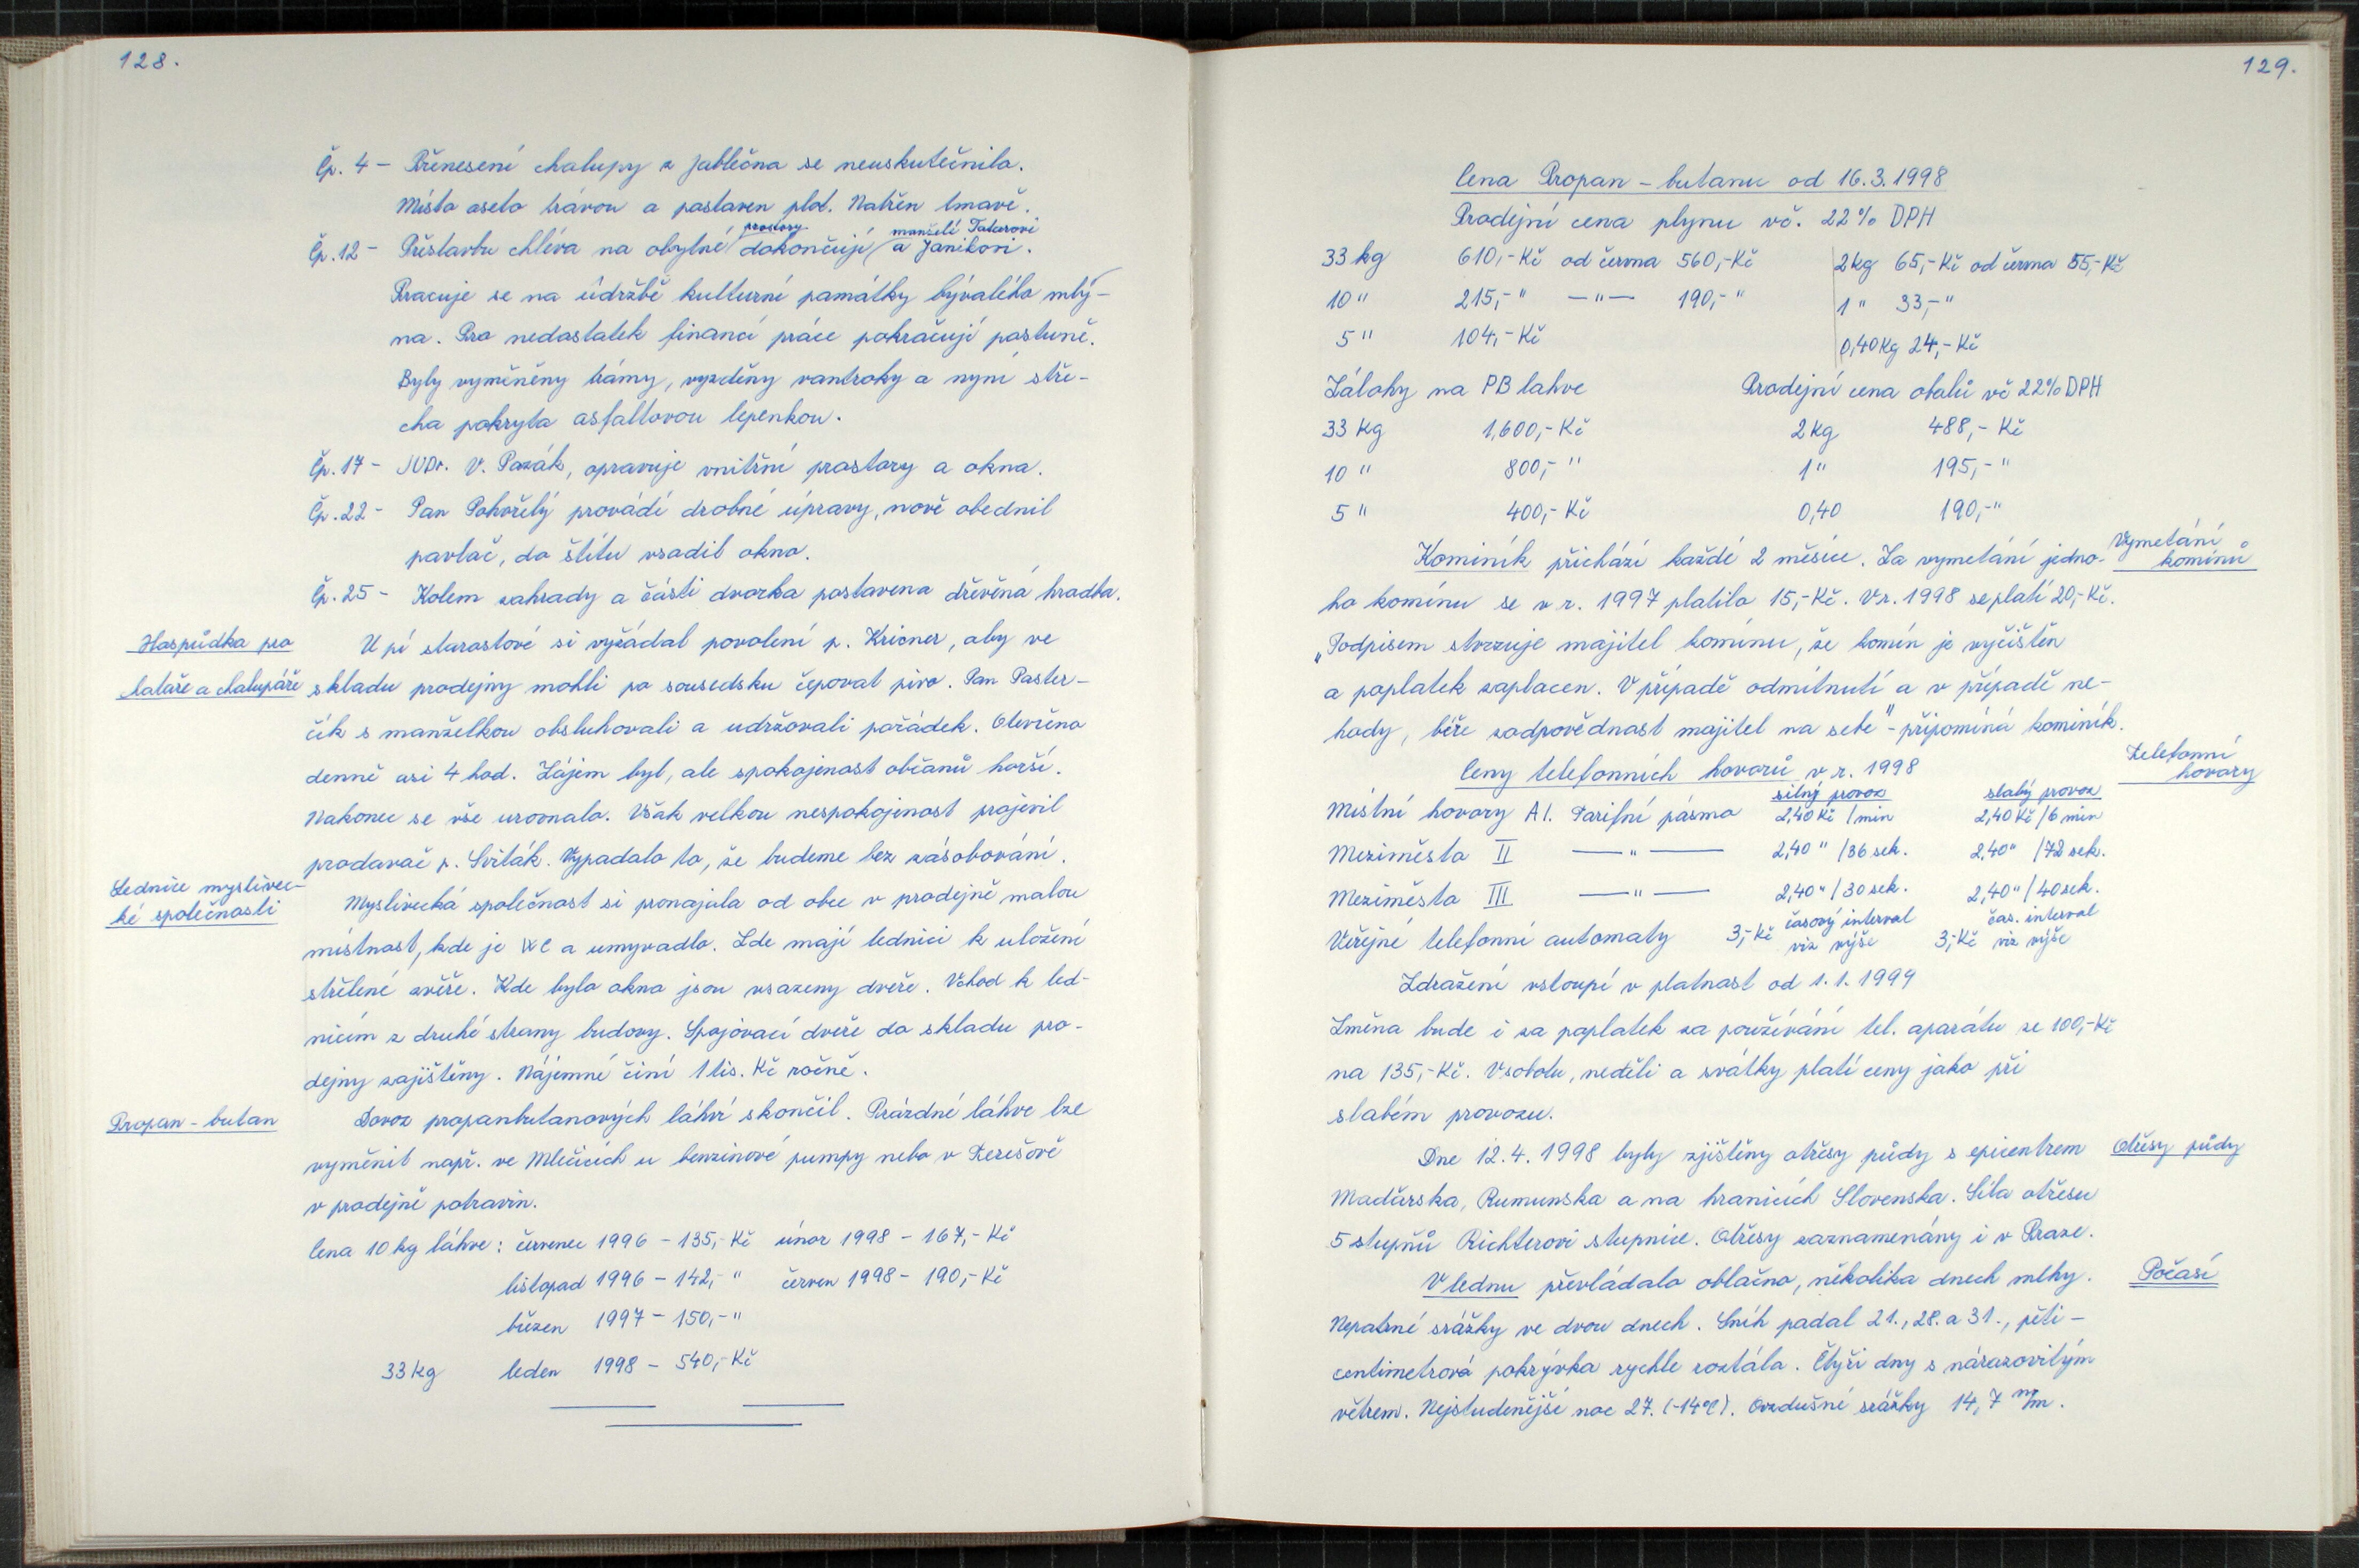 128.
Čp. 4 – Přenesení chalupy z Jablečna se neuskutečnilo.
Místo oseto trávou a postaven plot. Natřen tmavě.
prostory manželé Tatarovi
Čp. 12 – Přestavbu chléva na obytné dokončují a Janíkovi.
Pracuje se na údržbě kulturní památky bývalého mlý-
na. Pro nedostatek financí práce pokračují postupně.
Byly vyměněny trámy, vyzděny vantroky a nyní stře-
cha pokryta asfaltovou lepenkou.
Čp. 17 – JUDr. V. Pozák, opravuje vnitřní prostory a okna.
Čp. 22 – Pan Pohořelý provádí drobné úpravy, nově obednil
pavlač, do štítu vsadil okno.
Čp. 25 – Kolem zahrady a části dvorka postavena dřevěná hradba.
Hospůdka pro
lataře a chalupáře
U pí starostové si vyžádal povolení p. Kricner, aby ve
skladu prodejny mohli po sousedsku čepovat pivo. Pan Paster-
čík s manželkou obsluhovali a udržovali pořádek. Otevřeno
denně asi 4 hod. Zájem byl, ale spokojenost občanů horší.
Nakonec se vše urovnalo. Však velkou nespokojenost projevil
prodavač p. Sviták. Vypadalo to, že budeme bez zásobování.
Lednice myslivec-
ké společnosti
Myslivecká společnost si pronajala od obce v prodejně malou
místnost, kde je WC a umyvadlo. Zde mají lednici k uložení
střelené zvěře. Kde bylo okno jsou vsazeny dveře. Vchod k led-
nicím z druhé strany budovy. Spojovací dveře do skladu pro-
dejny zajištěny. Nájemné činí 1 tis. Kč ročně.
Propan – butan
Dovoz propanbutanových láhví skončil. Prázdné láhve lze
vyměnit např. ve Mlečicích u benzinové pumpy nebo v Terešově
v prodejně potravin.
Cena 10 kg láhve : červenec 1996 – 135,- Kč únor 1998 – 167,- Kč
listopad 1996 – 142,- " červen 1998 – 190,- Kč
březen 1997 – 150,- "
33 kg leden 1998 – 540,- Kč
129.
Cena Propan – butanu od 16.3.1998
Prodejní cena plynu vč. 22% DPH
33 kg 610,- Kč od června 560,- Kč 2 kg 65,- Kč od června 55,- Kč
10 " 215,- " — " — 190,- " 1 " 33,- "
5 " 104,- Kč 0,40 kg 24,- Kč
Zálohy na PB lahve Prodejní cena obalů vč 22% DPH
33 kg 1.600,- Kč 2 kg 488,- Kč
10 " 800,- " 1 " 195,- "
5 " 400,- Kč 0,40 190,- "
Vymetání
komínů
Kominík přichází každé 2 měsíce. Za vymetání jedno-
ho komínu se v r. 1997 platilo 15,- Kč. V r. 1998 se platí 20,- Kč.
„Podpisem stvrzuje majitel komínu, že komín je vyčištěn
a poplatek zaplacen. V případě odmítnutí a v případě ne-
hody, béře zodpovědnost majitel na sebe" – připomíná kominík.
Telefonní
hovory
Ceny telefonních hovorů v r. 1998
silný provoz slabý provoz
Místní hovory A I. Tarifní pásmo 2,40 Kč / min 2,40 Kč / 6 min
Meziměsta II — " — 2,40 " / 36 sek. 2,40 " / 72 sek.
Meziměsta III — " — 2,40 " / 30 sek. 2,40 " / 40 sek.
časový interval čas. interval
Veřejné telefonní automaty 3,- Kč viz výše 3,- Kč viz výše
Zdražení vstoupí v platnost od 1. 1. 1999
Změna bude i za poplatek za používání tel. aparátu ze 100,- Kč
na 135,- Kč. V sobotu, neděli a svátky platí ceny jako při
slabém provozu.
Otřesy půdy
Dne 12. 4. 1998 byly zjištěny otřesy půdy s epicentrem
Maďarska, Rumunska a na hranicích Slovenska. Síla otřesu
5 stupňů Richterovi stupnice. Otřesy zaznamenány i v Praze.
Počasí
V lednu převládalo oblačno, několika dnech mlhy.
Nepatrné srážky ve dvou dnech. Sníh padal 21., 28. a 31., pěti –
centimetrová pokrývka rychle roztála. Čtyři dny s nárazovitým
větrem. Nejstudenější noc 27. (-14°C). Ovzdušné srážky 14,7 m/m.